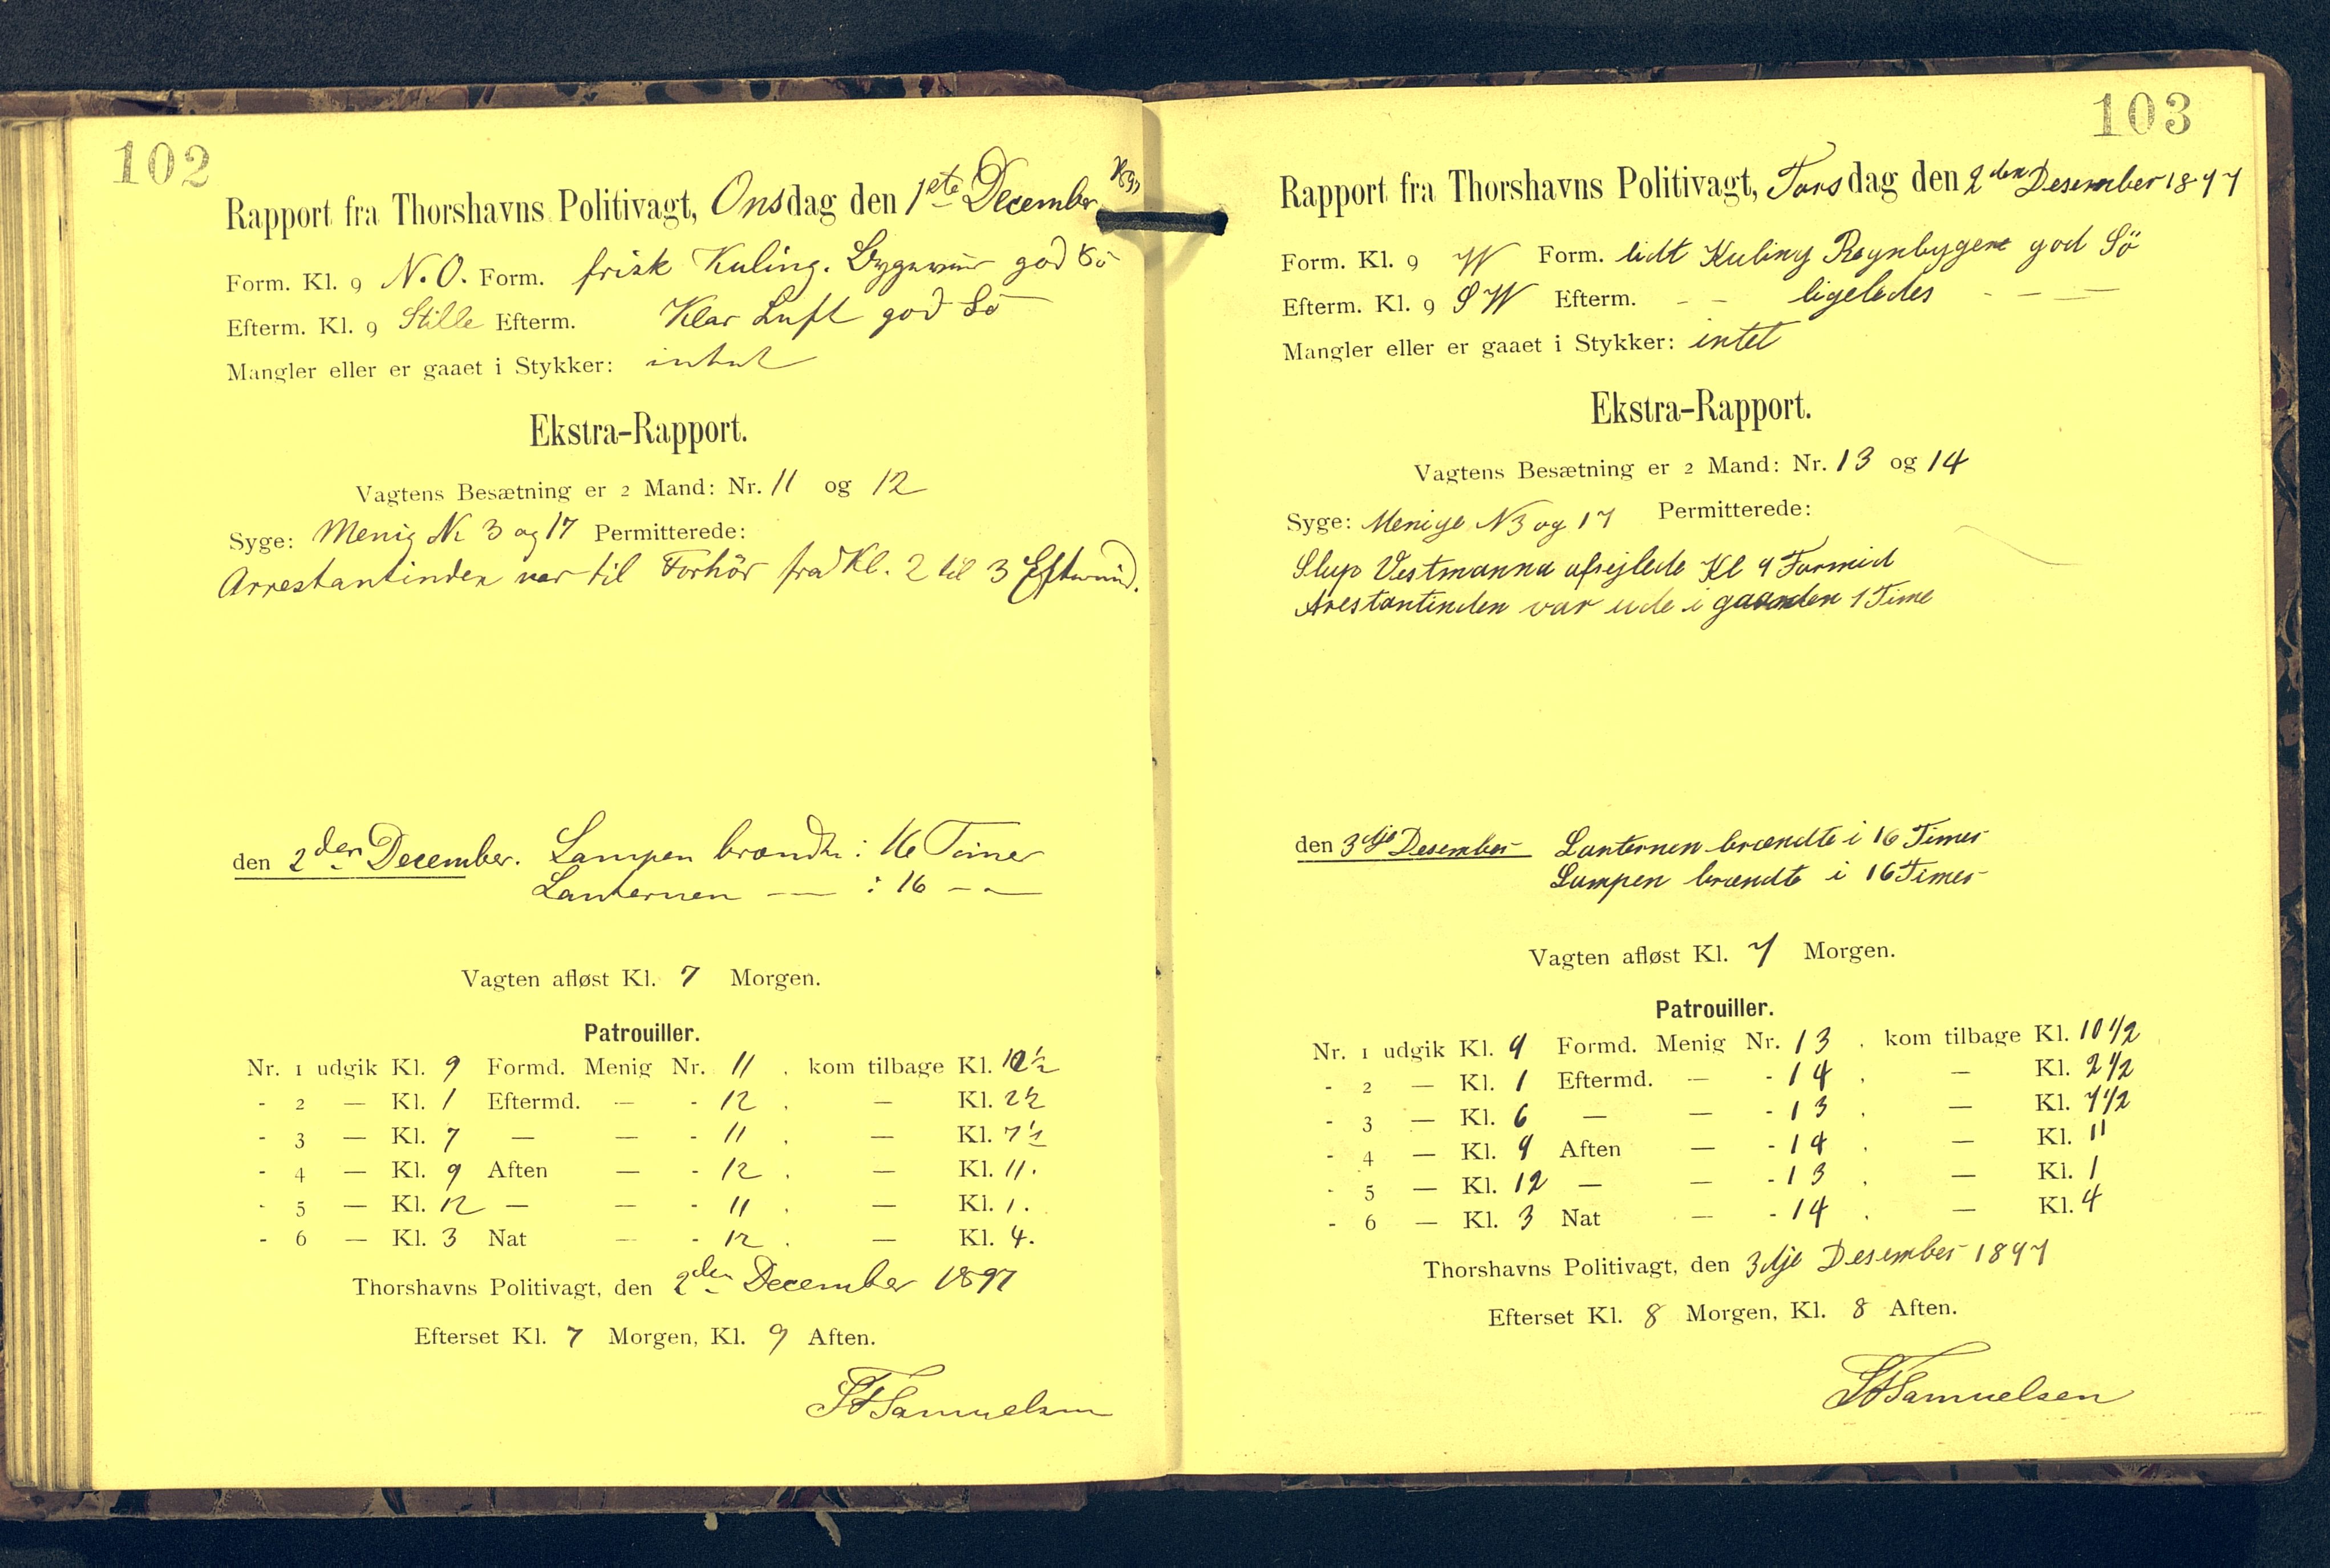 102
Rapport fra Thorshavns Politivagt, Onsdag den 1ste December 1897
Form. Kl. 9 N.O. Form. frisk Kuling. god Sö
Efterm. Kl. 9 Stille Efterm. Klar Luft god Sö
Mangler eller er gaaet i Stykker: intet
Ekstra-Rapport.
Vagtens Besætning er 2 Mand: Nr. 11 og 12
Syge: Menig Nr 3 og 17 Permitterede:
Arrestantinden var til Forhör fra Kl. 2 til 3 Eftermid.
den 2den December. Lampen brændte i 16 Timer
Lanternen — i 16 —
Vagten afløst Kl. 7 Morgen.
Patrouiller.
Nr. 1 udgik Kl. 9 Formd. Menig Nr. 11 . kom tilbage Kl. 10½
- 2 — Kl. 1 Eftermd. — - 12 . — Kl. 2½
- 3 — Kl. 7 — — - 11 . — Kl. 7½
- 4 — Kl. 9 Aften — - 12 . — Kl. 11.
- 5 — Kl. 12 — — - 11 . — Kl. 1.
- 6 — Kl. 3 Nat — - 12 . — Kl. 4.
Thorshavns Politivagt, den 2den December 1897
Efterset Kl. 7 Morgen, Kl. 9 Aften.
Samuelsen
103
Rapport fra Thorshavns Politivagt, Torsdag den 2den Desember 1897
Form. Kl. 9 W Form. lidt Kuling Regnbyger god Sö
Efterm. Kl. 9 SW Efterm. - - ligeledes - - - -
Mangler eller er gaaet i Stykker: intet
Ekstra-Rapport.
Vagtens Besætning er 2 Mand: Nr. 13 og 14
Syge: Menige N 3 og 17 Permitterede:
Slup Vestmanna afsejlede Kl 9 Formid
Arestantinden var ude i gaarden 1 Time
den 3dje Desember Lanternen brændte i 16 Timer
Lampen brændte i 16 Timer
Vagten afløst Kl. 7 Morgen.
Patrouiller.
Nr. 1 udgik Kl. 9 Formd. Menig Nr. 13 . kom tilbage Kl. 10 1/2
- 2 — Kl. 1 Eftermd. — - 14 . — Kl. 2 1/2
- 3 — Kl. 6 — — - 13 . — Kl. 7 1/2
- 4 — Kl. 9 Aften — - 14 . — Kl. 11
- 5 — Kl. 12 — — - 13 . — Kl. 1
- 6 — Kl. 3 Nat — - 14 . — Kl. 4
Thorshavns Politivagt, den 3dje Desember 1897
Efterset Kl. 8 Morgen, Kl. 8 Aften.
Samuelsen